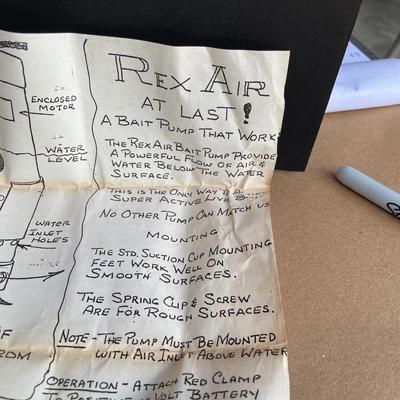 ENCLOSED
MOTOR
WATER
LEVEL
WATER
INLET
HOLES
REX AIR
AT LAST!
A BAIT PUMP THAT WORK
THE REX AIR BAIT PUMP PROVIDE
A POWERFUL FLOW OF AIR &
WATER BELOW THE WATER
SURFACE.
THIS IS THE ONLY WAY TO A
SUPER ACTIVE LIVE
NO OTHER PUMP CAN MATCH US
MOUNTING
THE STD. SUCTION CUP MOUNTING
FEET WORK WELL ON
SMOOTH SURFACES.
THE SPRING CLIP & SCREW
ARE FOR ROUGH SURFACES.
NOTE - THE PUMP MUST BE MOUNTED
WITH AIR INLET ABOVE WATER
OPERATION - ATTACH RED CLAMP
VOLT BATTERY